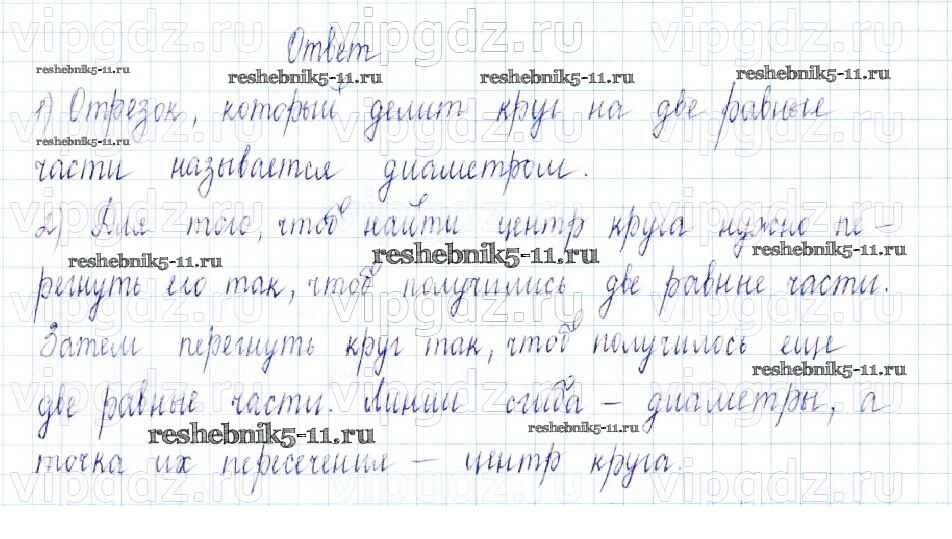 vipgdz.ru vipgdz.ru vipgdz.ru
Ответ
reshebnik5-11.ru reshebnik5-11.ru reshebnik5-11.ru reshebnik5-11.ru
1) Отрезок, который делит круг на две равные
reshebnik5-11.ru
части называется диаметром.
2) Для того, чтоб найти центр круга нужно пе-
reshebnik5-11.ru reshebnik5-11.ru reshebnik5-11.ru
регнуть его так, чтоб получились две равные части.
Затем перегнуть круг так, чтоб получилось еще
reshebnik5-11.ru
две равные части. Линии сгиба – диаметры, а
reshebnik5-11.ru reshebnik5-11.ru
точка их пересечения – центр круга.
vipgdz.ru vipgdz.ru vipgdz.ru